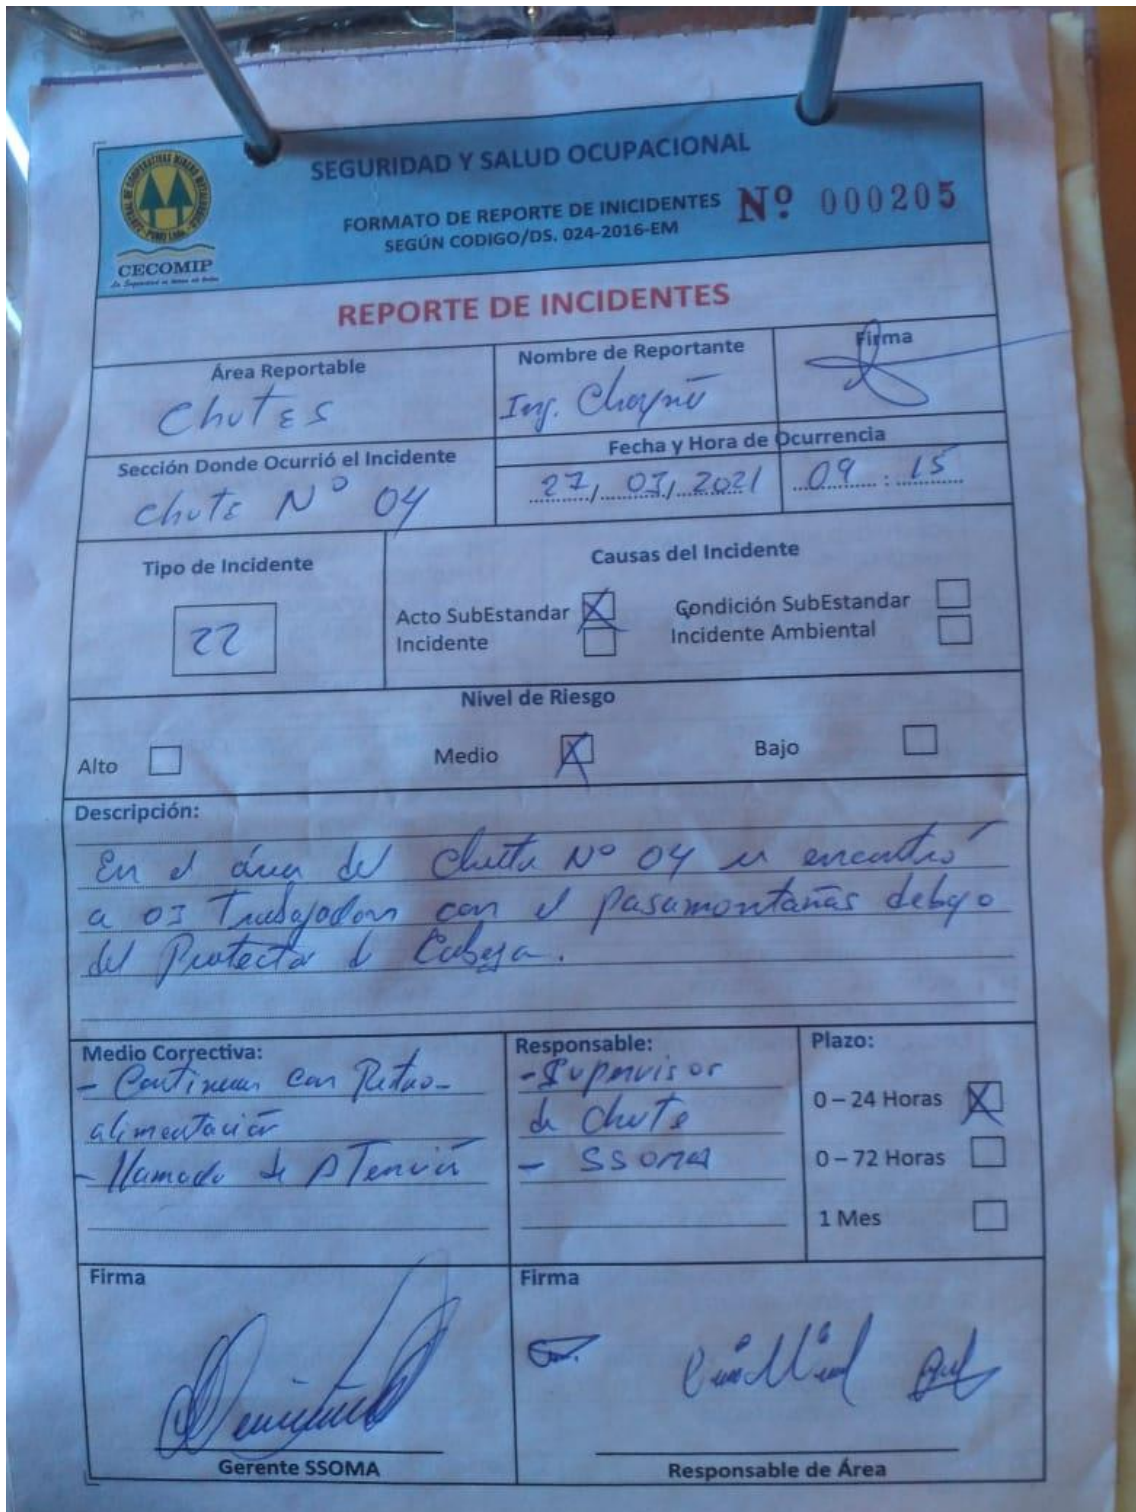 SEGURIDAD Y SALUD OCUPACIONAL
FORMATO DE REPORTE DE INICIDENTES
SEGÚN CODIGO/DS. 024-2016-EM
Nº 000205
CECOMIP
REPORTE DE INCIDENTES
Área Reportable
Chutes
Nombre de Reportante
Ing.
Firma
Sección Donde Ocurrió el Incidente
Chute Nº 04
Fecha y Hora de Ocurrencia
27/03/2021 09:15
Tipo de Incidente
22
Causas del Incidente
Acto SubEstandar X
Condición SubEstandar
Incidente
Incidente Ambiental
Nivel de Riesgo
Alto
Medio X
Bajo
Descripción:
En el área del Chute Nº 04 se encontró
a 03 Trabajadores con el pasamontañas debajo
del Protector de Cabeza.
Medio Correctiva:
- Continuar con Retro-
alimentación
- llamado de Atención
Responsable:
- Supervisor
de Chute
- SSOMA
Plazo:
0 – 24 Horas X
0 – 72 Horas
1 Mes
Firma
Gerente SSOMA
Firma
Responsable de Área